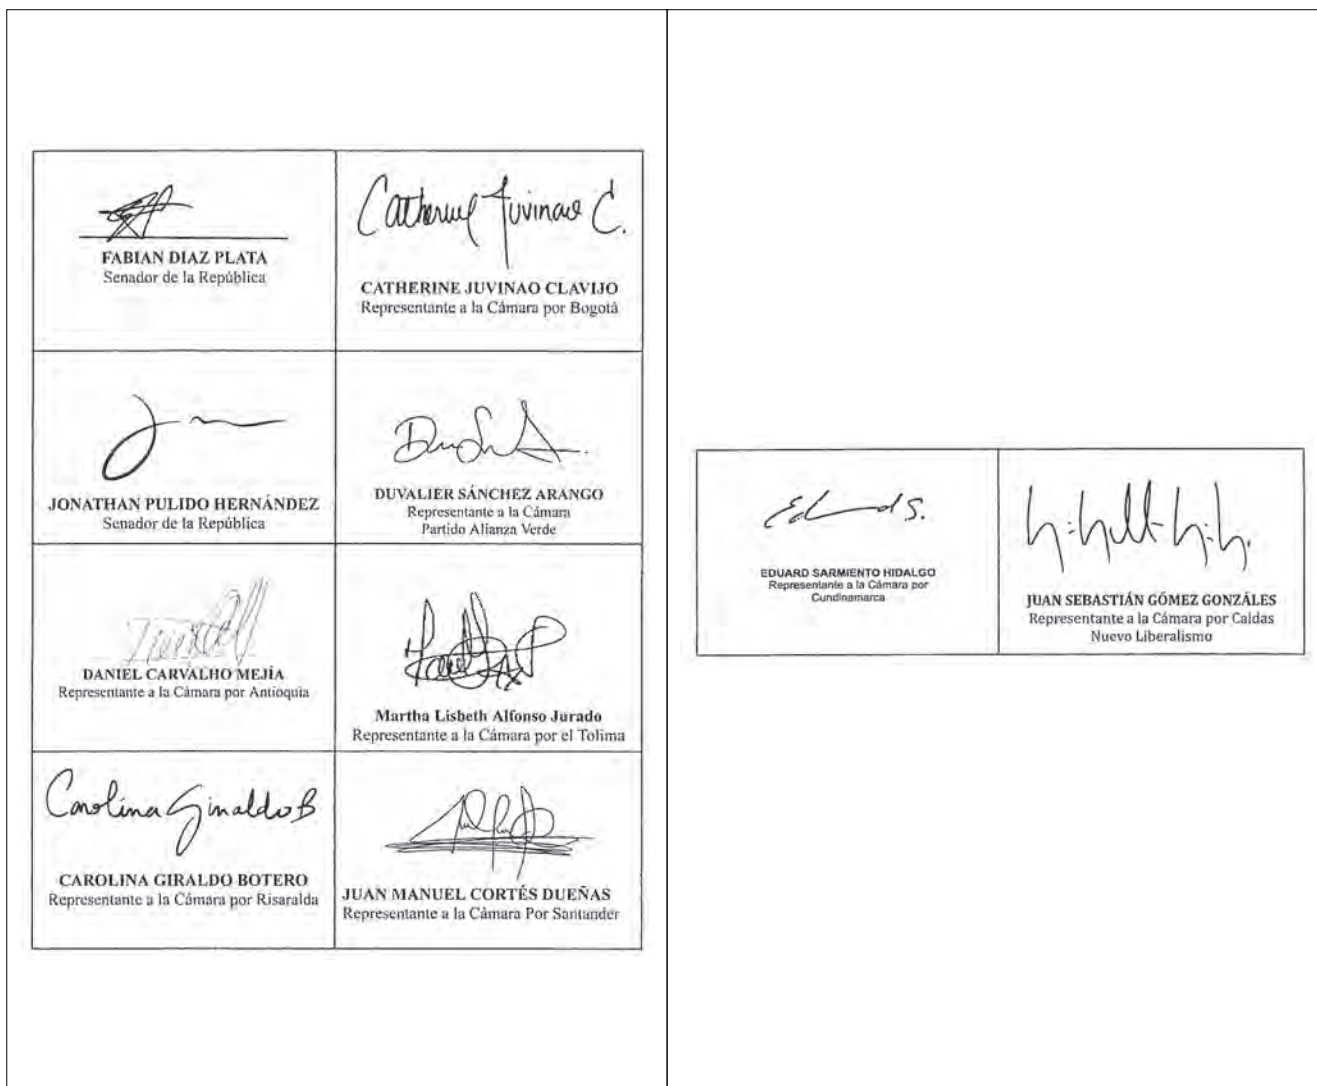 FABIAN DIAZ PLATA
Senador de la República
Catherine Juvinao C.
CATHERINE JUVINAO CLAVIJO
Representante a la Cámara por Bogotá
JONATHAN PULIDO HERNÁNDEZ
Senador de la República
DUVALIER SÁNCHEZ ARANGO
Representante a la Cámara
Partido Alianza Verde
DANIEL CARVALHO MEJÍA
Representante a la Cámara por Antioquia
Martha Lisbeth Alfonso Jurado
Representante a la Cámara por el Tolima
Carolina Giraldo B
CAROLINA GIRALDO BOTERO
Representante a la Cámara por Risaralda
JUAN MANUEL CORTÉS DUEÑAS
Representante a la Cámara Por Santander
EDUARD SARMIENTO HIDALGO
Representante a la Cámara por
Cundinamarca
JUAN SEBASTIÁN GÓMEZ GONZÁLES
Representante a la Cámara por Caldas
Nuevo Liberalismo